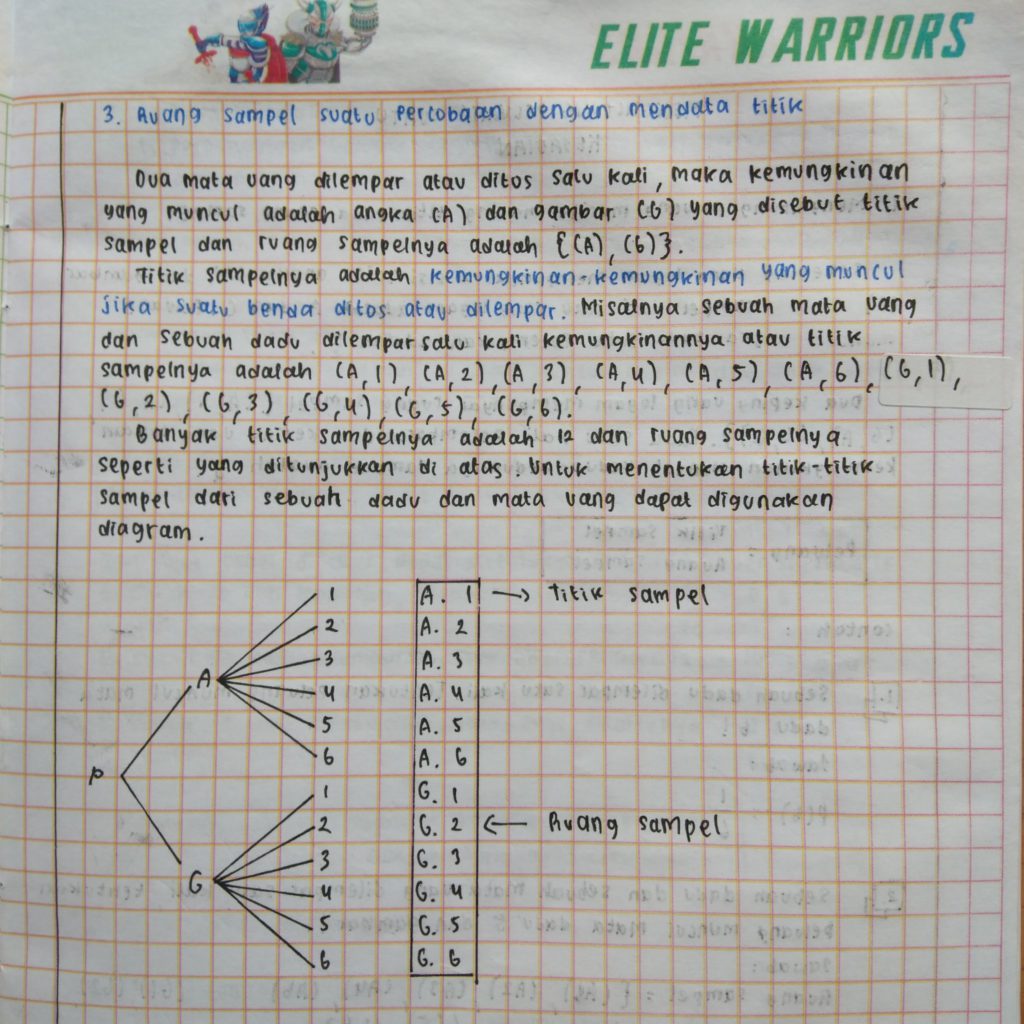 ELITE WARRIORS
3. Ruang sampel suatu percobaan dengan mendata titik
Dua mata uang dilempar atau ditos salu kali, maka kemungkinan
yang muncul adalah angka (A) dan gambar (G) yang disebut titik
sampel dan ruang sampelnya adalah {(A), (G)}.
Titik sampelnya adalah kemungkinan-kemungkinan yang muncul
jika suatu benda ditos atau dilempar. Misalnya sebuah mata uang
dan sebuah dadu dilempar salu kali kemungkinannya atau titik
sampelnya adalah (A, 1), (A, 2), (A, 3), (A, 4), (A, 5), (A, 6), (G, 1),
(G, 2), (G, 3), (G, 4), (G, 5), (G, 6).
Banyak titik sampelnya adalah 12 dan ruang sampelnya
seperti yang ditunjukkan di atas. Untuk menentukan titik-titik
sampel dari sebuah dadu dan mata uang dapat digunakan
diagram.
1 A. 1 → Titik sampel
2 A. 2
3 A. 3
A 4 A. 4
5 A. 5
6 A. 6
P
1 G. 1
2 G. 2 ← Ruang sampel
3 G. 3
G 4 G. 4
5 G. 5
6 G. 6